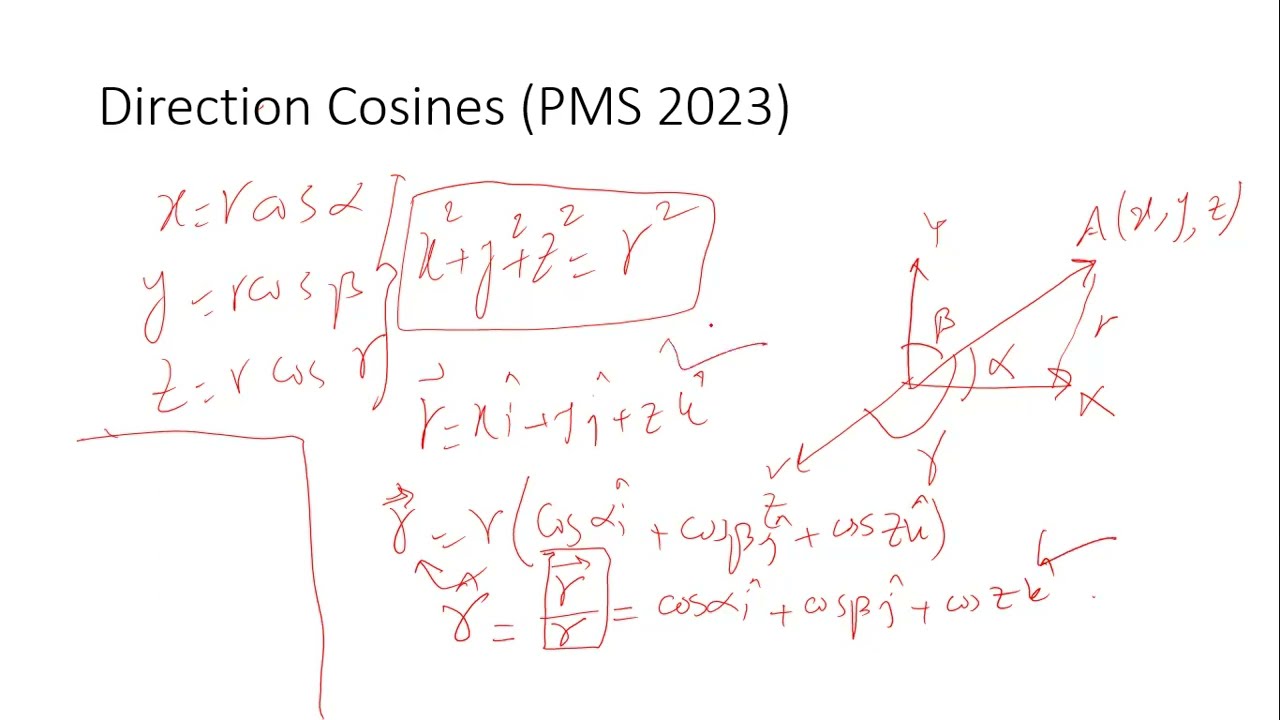 Direction Cosines (PMS 2023)
x = r cos α
y = r cos β
z = r cos γ
x² + y² + z² = r²
r⃗ = xî + yĵ + zk̂
r⃗ = r(cos αî + cosβĵ + cos zk̂)
r̂ = r⃗/r = cosαî + cosβĵ + cos z k̂
Y
A(x, y, z)
β
r
α
X
γ
Z